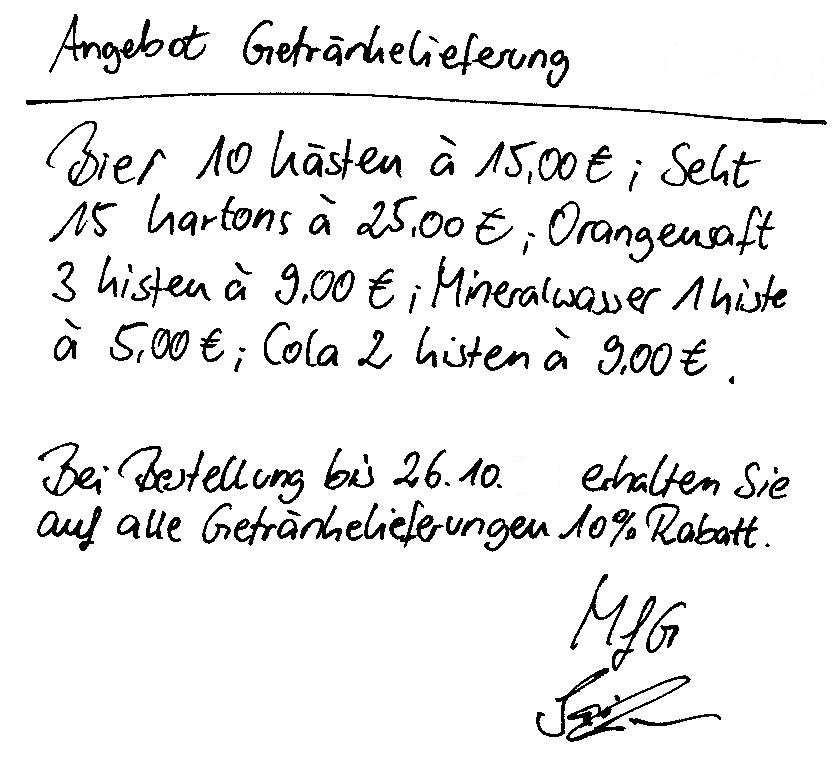 Angebot Getränkelieferung
Bier 10 Kästen à 15,00 €; Sekt
15 Kartons à 25,00 €; Orangensaft
3 Kisten à 9,00 €; Mineralwasser 1 Kiste
à 5,00 €; Cola 2 Kisten à 9,00 €.
Bei Bestellung bis 26.10. erhalten Sie
auf alle Getränkelieferungen 10% Rabatt.
MfG